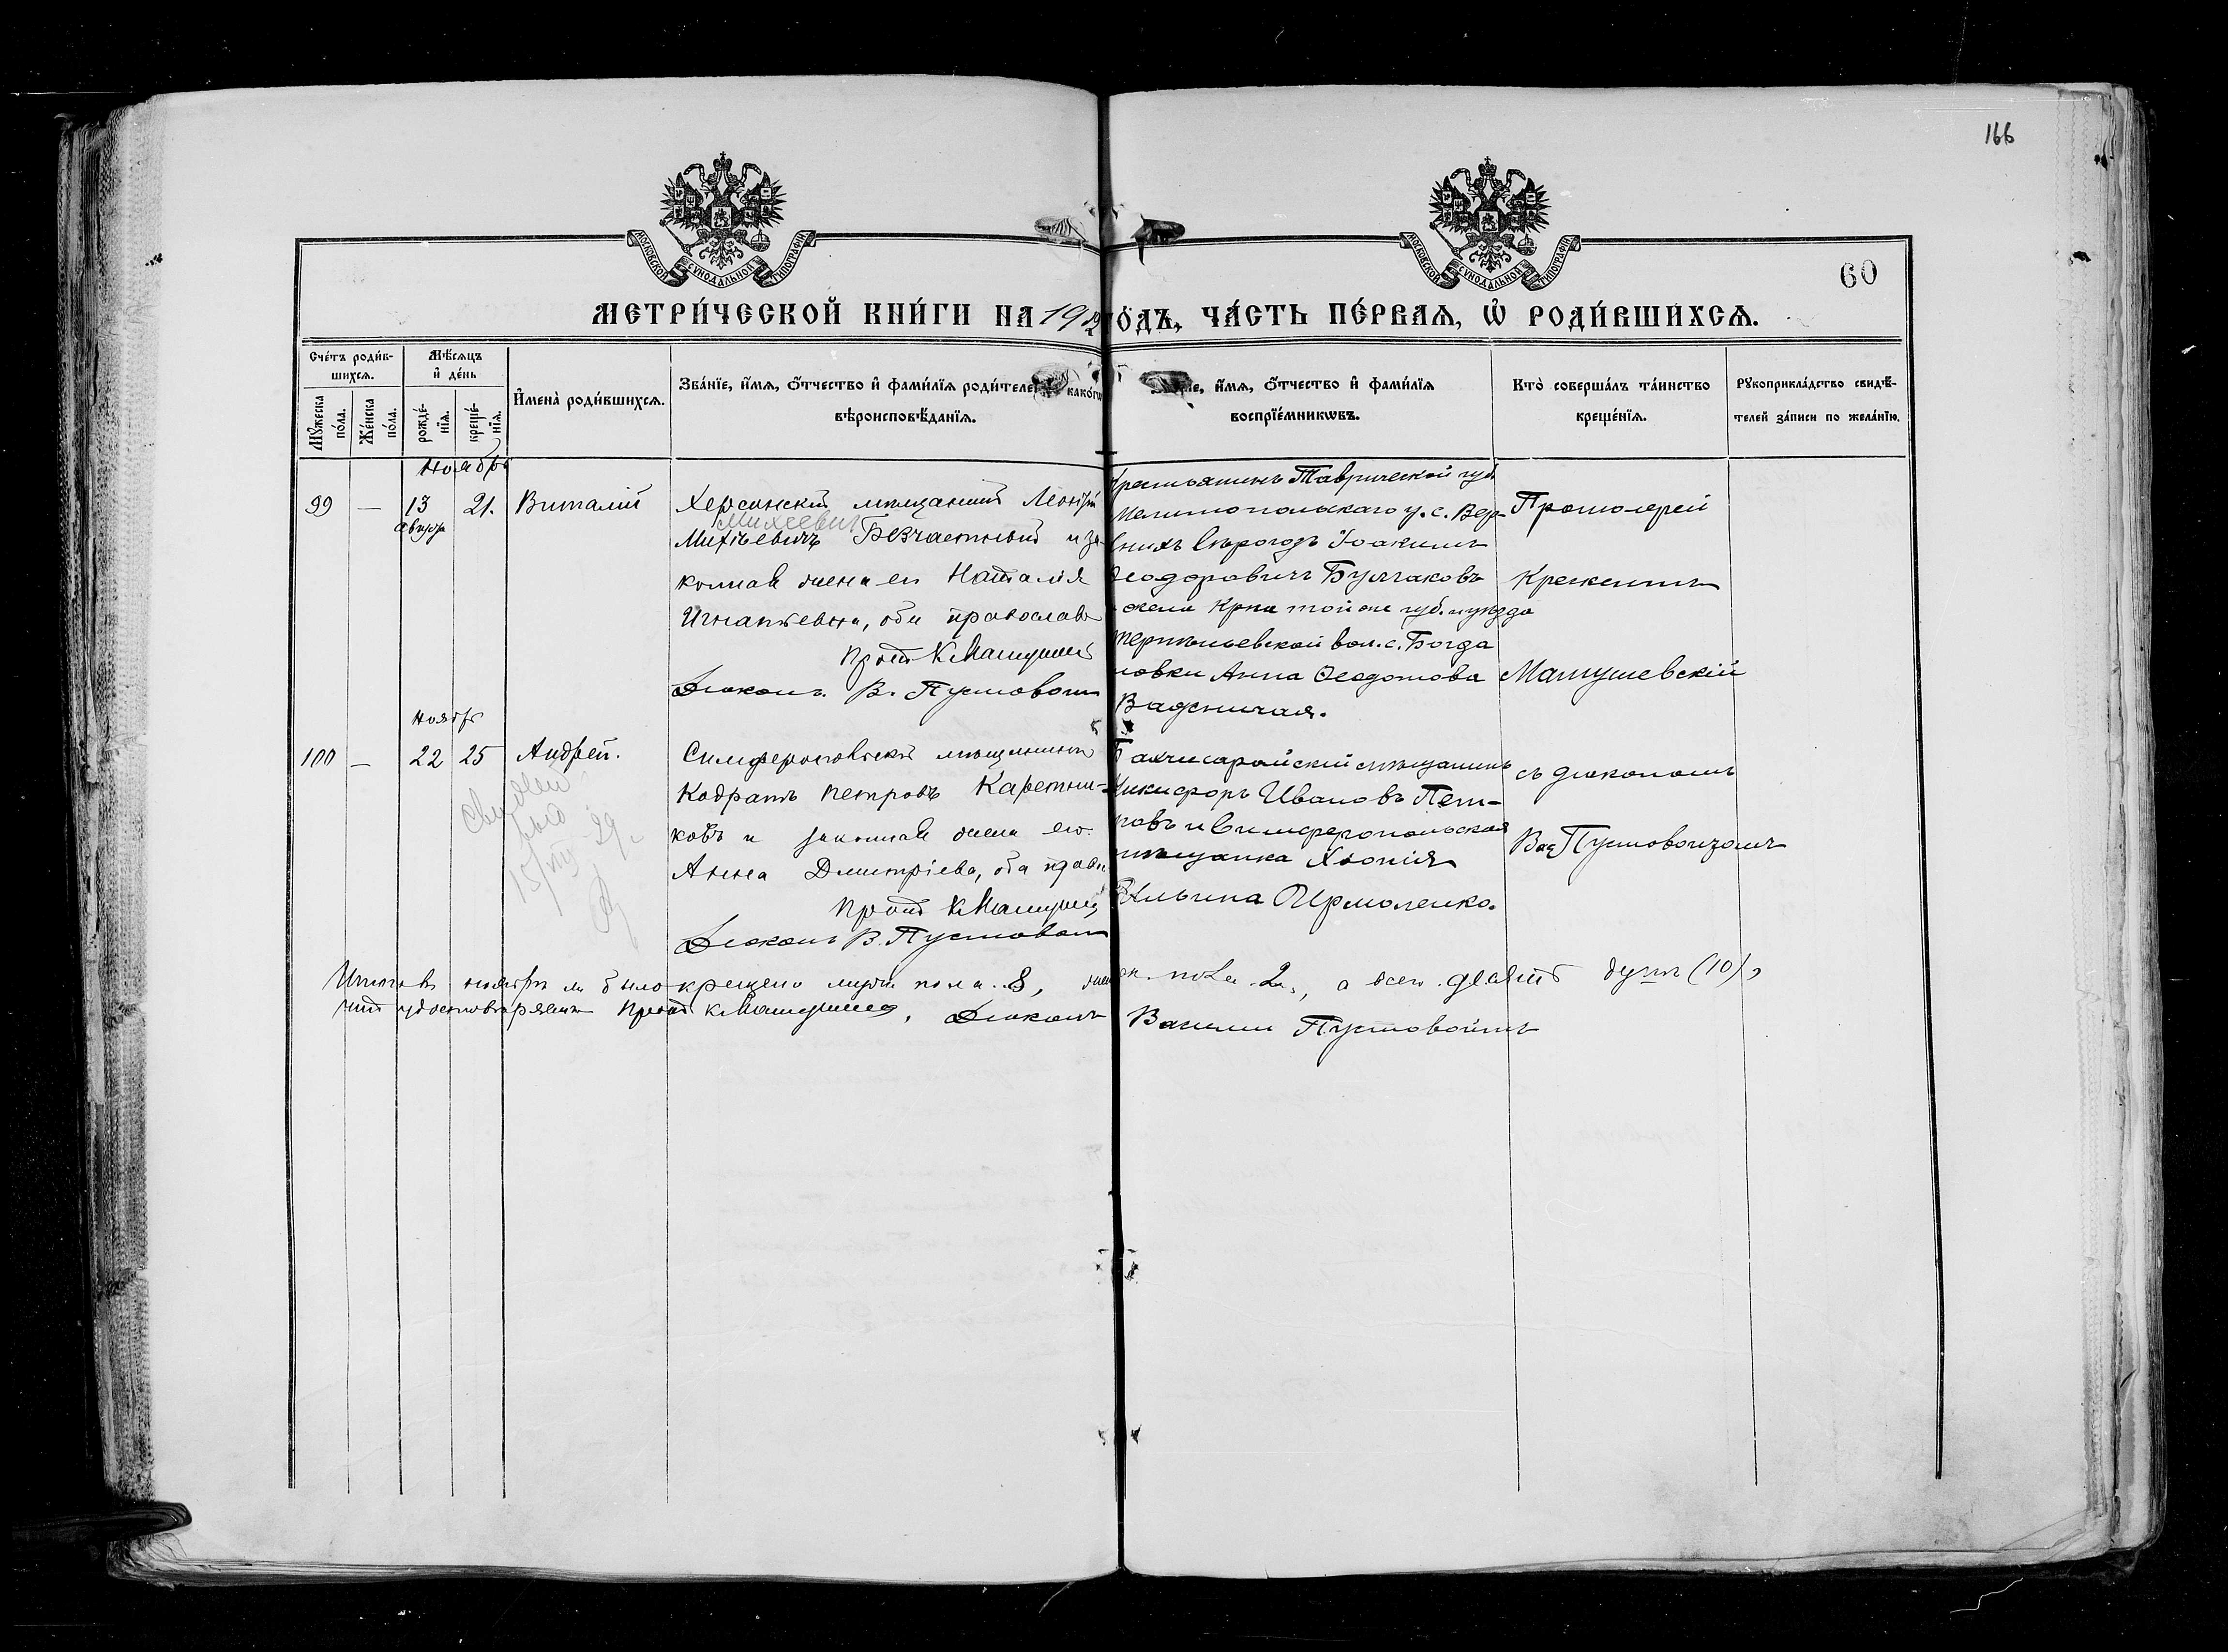 166
МОСКОВСКОЙ СѴНОДАЛЬНОЙ ТИПОГРАФІИ
МОСКОВСКОЙ СѴНОДАЛЬНОЙ ТИПОГРАФІИ
60
МЕТРИ́ЧЕСКОЙ КНИ́ГИ НА 19 ГО́ДЪ, ЧА́СТЬ ПЕ́РВАЯ, Ѡ҆ РОДИ́ВШИХСЯ.
Сче́тъ роди́в-
шихся.
Мѣ́сяцъ
и҆ де́нь
Мꙋ́жеска
по́ла.
Же́нска
по́ла.
рожде́-
нїя.
креще́-
нїя.
И҆мена̀ роди́вшихся.
Зва́нїе, и҆́мя, ѻ҆́тчество и҆ фами́лїя роди́телей како́гѡ
вѣроисповѣ́данїя.
и҆́мя, ѻ҆́тчество и҆ фами́лїя
воспрїе́мникѡвъ.
Кто̀ соверша́лъ та́инство
креще́нїя.
Рꙋкоприкла́дство свидѣ́-
телей за́писи по жела́нїю.
Ноябрь
99 — 13 21. Виталій
Херсонскій мѣщанинъ Леонтій
Михеевич
Михѣевичъ Безчастный и за-
конная жена его Наталія
Игнатьевна, оба православ
Прот К Матушев
Діаконъ В. Пустовойт
Крестьянинъ Таврической губ.
Мелитопольскаго у. с. Вер-
хнихъ Сѣрогозъ Іоакимъ
Ѳеодоровичъ Булгаковъ
и жена Крна той же губ. и уѣзда
вол. с. Богда
новки Анна Ѳеодотова
Протоіерей
Климентъ
Матушевскій
Ноябрь
100 — 22 25 Андрей.
15/VII 29 г
Симферопольскій мѣщанинъ
Кодратъ Петровъ Каретни-
ковъ и законная жена его
Анна Дмитріева, оба прав
Прот К Матушев
Діаконъ В. Пустовойт
Бахчисарайскій мѣщанинъ
Никифоръ Ивановъ Пет-
ровъ и Симферопольская
мѣщанка Хіонія
Ильина Ирмоленко.
съ діакономъ
Вас Пустовойтомъ
Итого въ ноябрѣ м. было крещено муж. пола 8, жен. пола 2, а всего десять душъ (10),
удостовѣряемъ Прот К Матушев, Діаконъ Василій Пустовойтъ